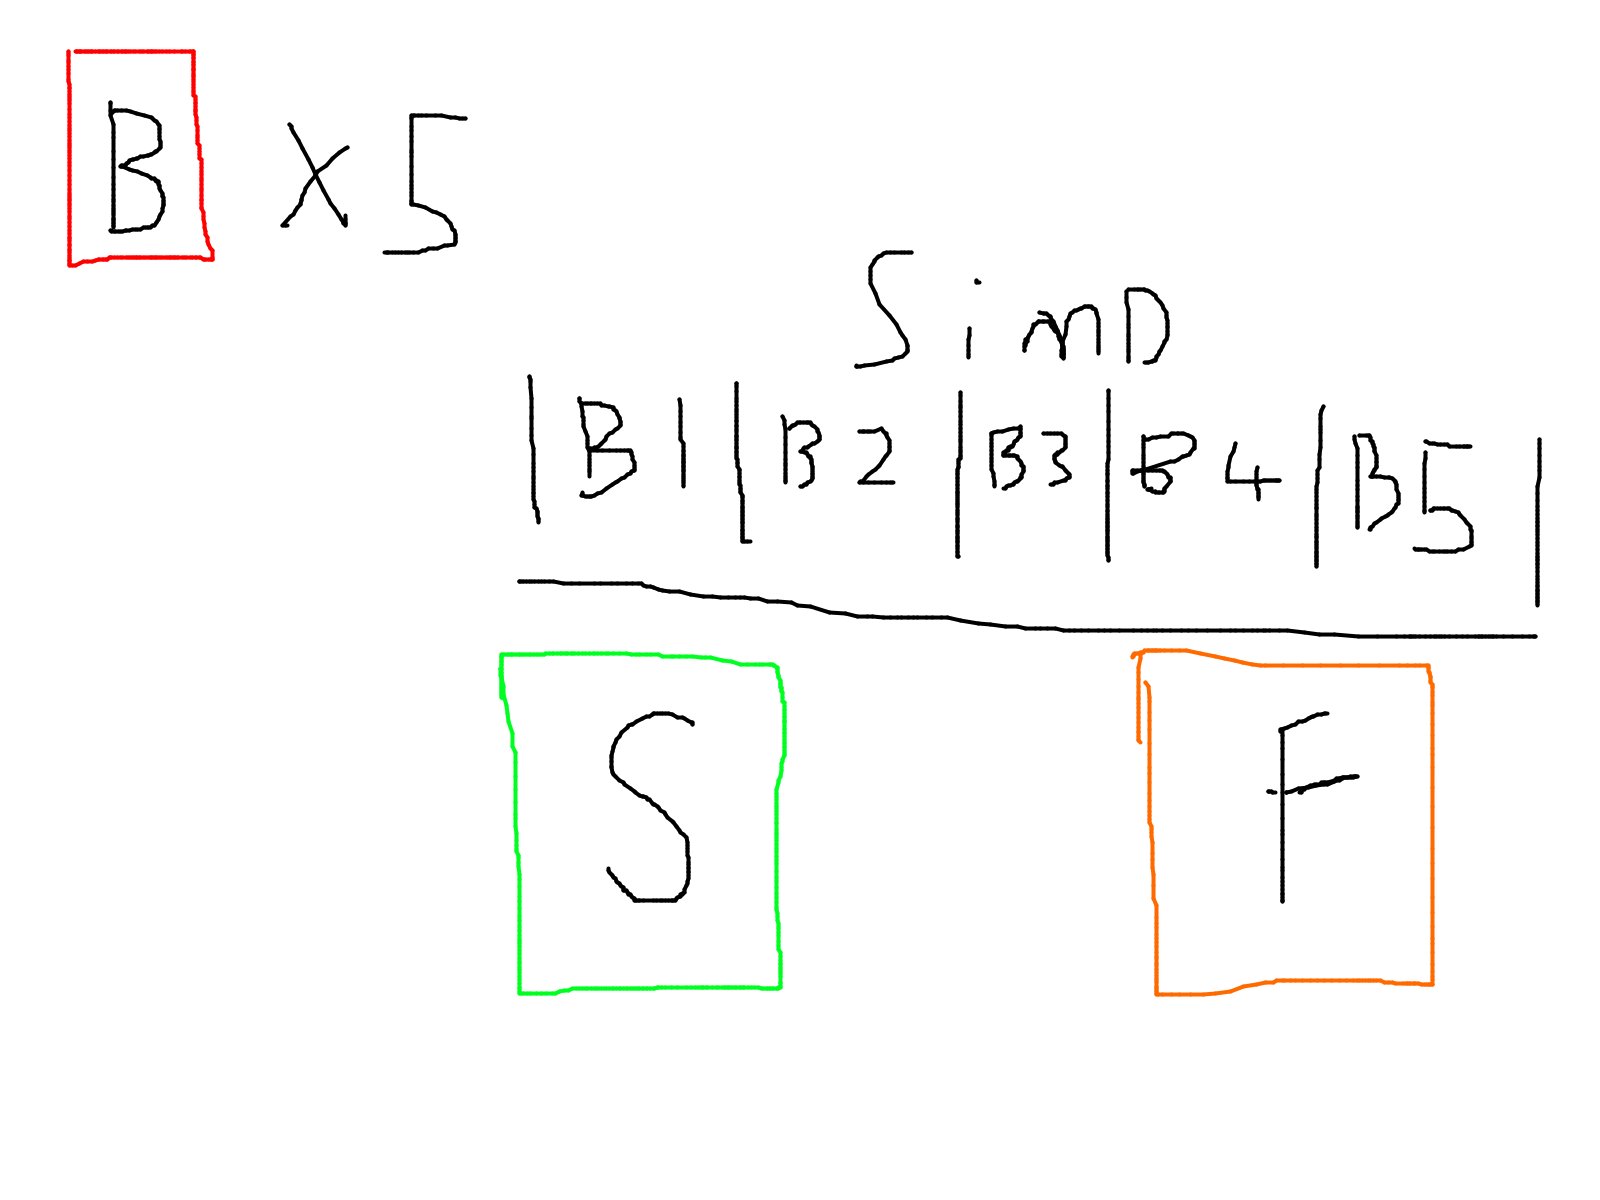 B X 5
SimD
|B1|B2|B3|B4|B5|
S F